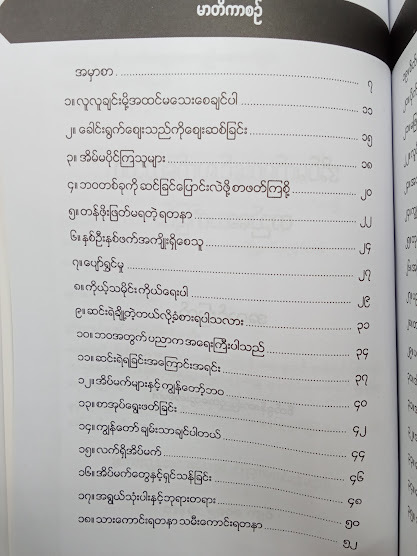 မာတိကာစဉ်
အမှာစာ ... ၇
၁။ လူလူချင်းမို့အထင်မသေးစေချင်ပါ ... ၁၁
၂။ ခေါင်းရွက်ဈေးသည်ကိုဈေးဆစ်ခြင်း ... ၁၅
၃။ အိမ်မပိုင်ကြသူများ ... ၁၈
၄။ ဘဝတစ်ခုကို ဆင်ခြင်ပြောင်းလဲဖို့ စာဖတ်ကြစို့ ... ၂၀
၅။ တန်ဖိုးဖြတ်မရတဲ့ ရတနာ ... ၂၂
၆။ နှစ်ဦးနှစ်ဖက်အကျိုးရှိစေသူ ... ၂၄
၇။ ပျော်ရွှင်မှု ... ၂၇
၈။ ကိုယ့်သမိုင်းကိုယ်ရေးပါ ... ၂၉
၉။ ဆင်းရဲချို့တဲ့တယ်လို့ခံစားရပါသလား ... ၃၁
၁၀။ ဘဝအတွက် ပညာက အရေးကြီးပါသည် ... ၃၄
၁၁။ ဆင်းရဲရခြင်းအကြောင်းအရင်း ... ၃၇
၁၂။ အိပ်မက်များနှင့်ကျွန်တော့်ဘဝ ... ၄၀
၁၃။ စာအုပ်ရွေးဖတ်ခြင်း ... ၄၂
၁၄။ ကျွန်တော် ချမ်းသာချင်ပါတယ် ... ၄၄
၁၅။ လက်ရှိအိပ်မက် ... ၄၆
၁၆။ အိပ်မက်တွေနှင့်ရှင်သန်ခြင်း ... ၄၈
၁၇။ အရွယ်သုံးပါးနှင့်ဘုရားတရား ... ၅၀
၁၈။ သားကောင်းရတနာ သမီးကောင်းရတနာ ... ၅၂